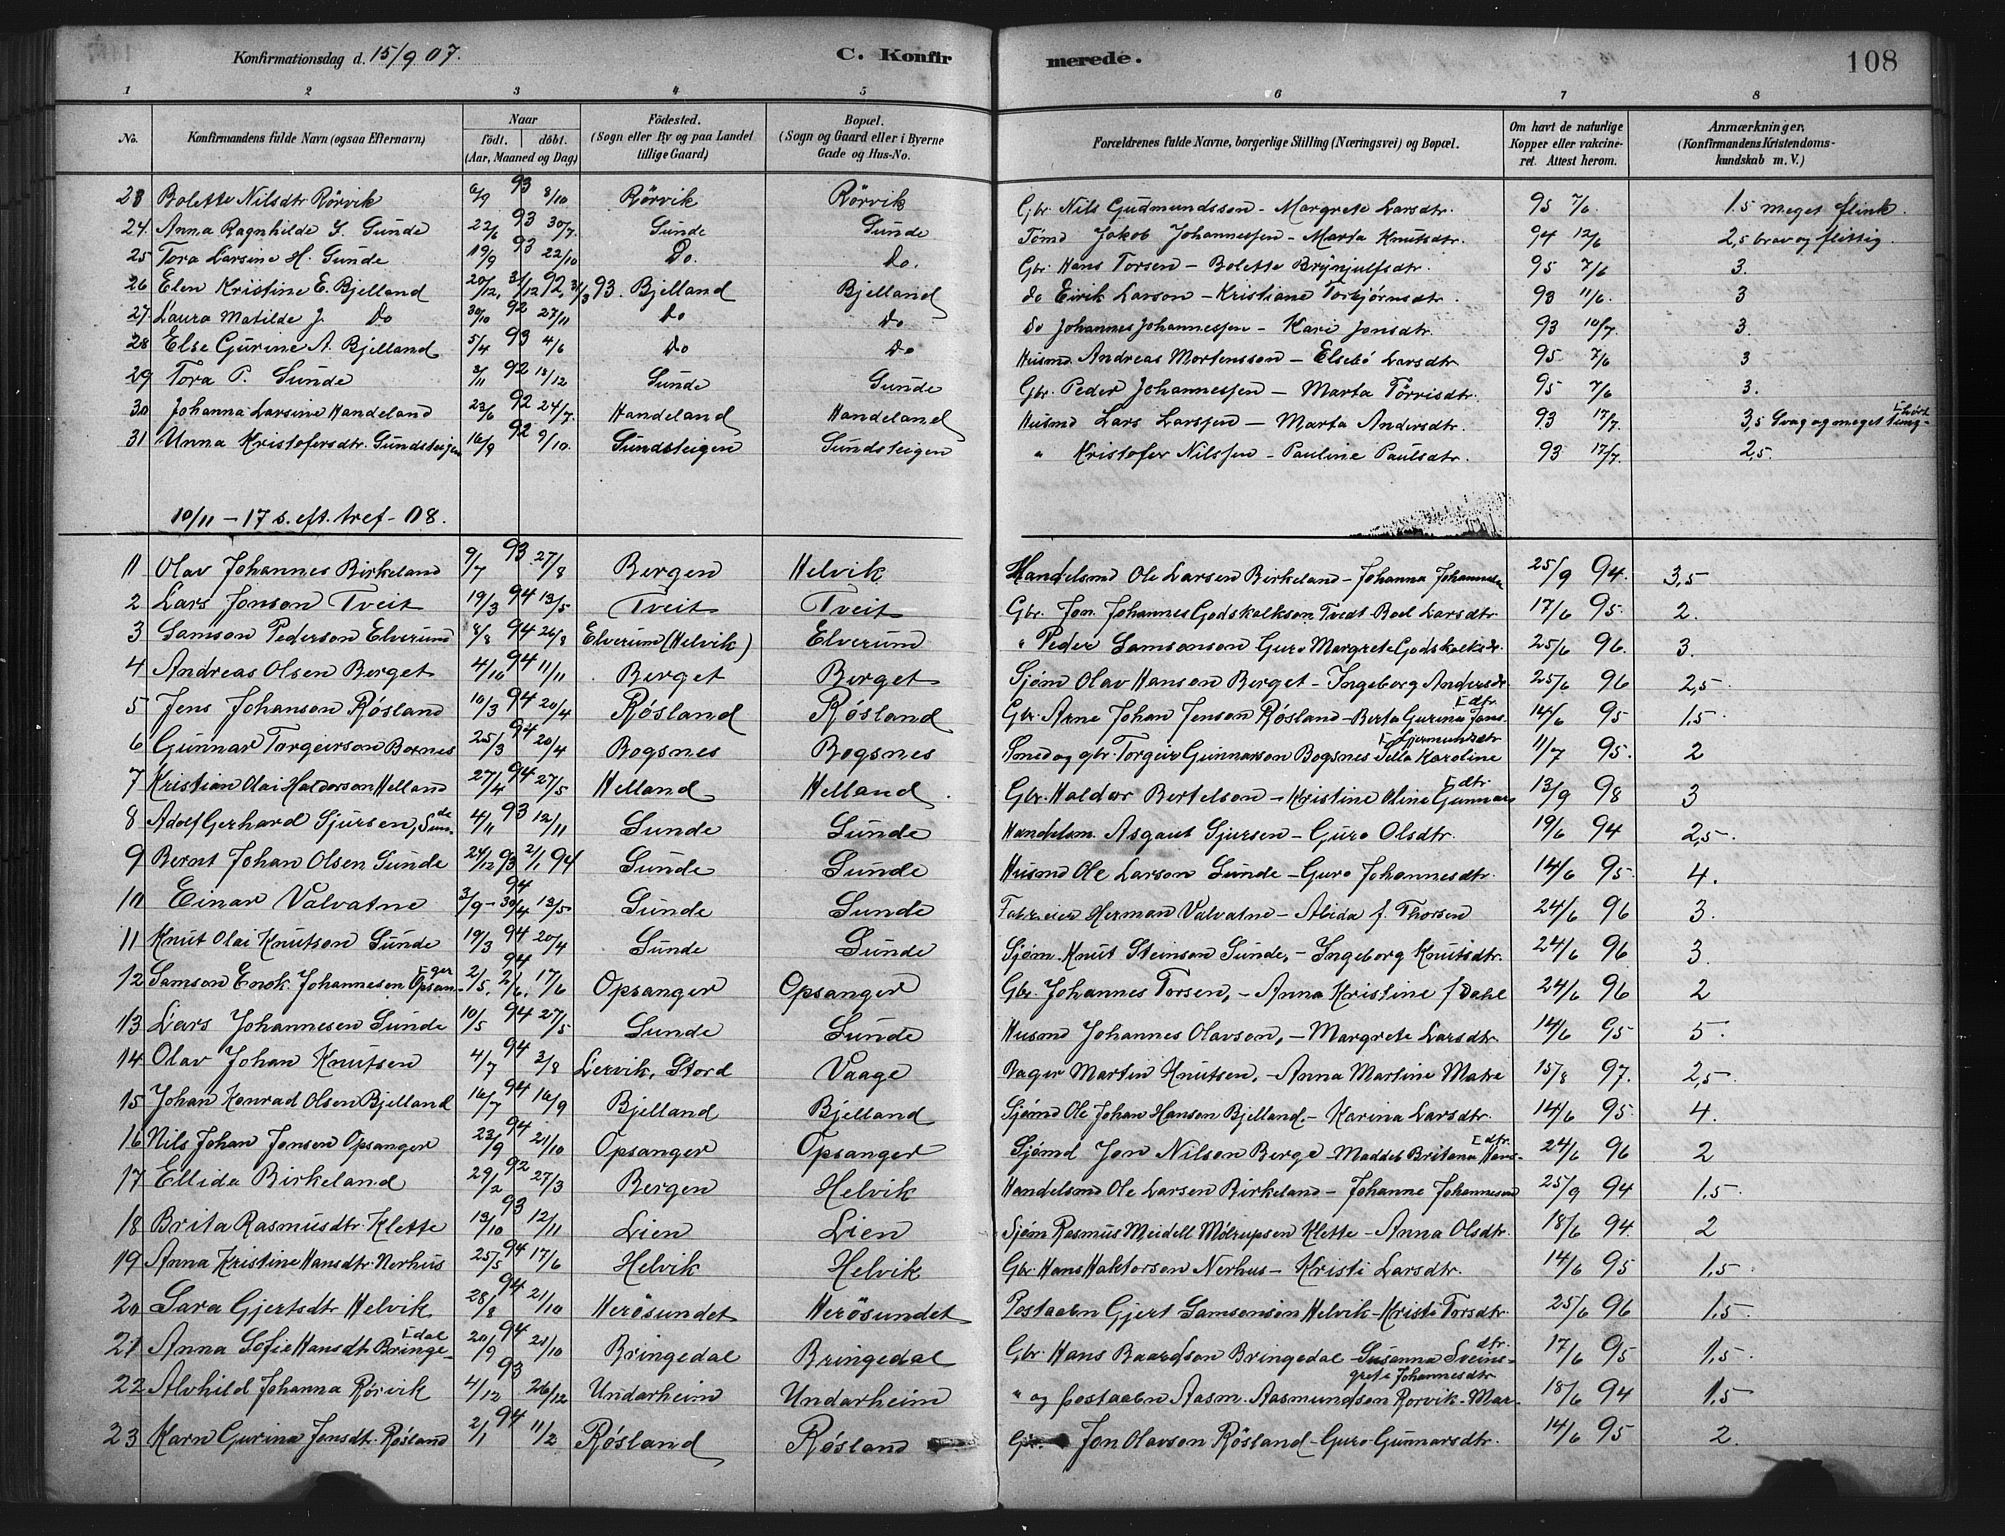 Konfirmationsdag d. 15/9 07. C. Konfirmerede. 108
1 2 3 4 5 6 7 8
No. Konfirmandens fulde Navn (ogsaa Efternavn) Naar födt. döbt. (Aar, Maaned og Dag) Födested. (Sogn eller By og paa Landet tillige Gaard) Bopæl. (Sogn og Gaard eller i Byerne Gade og Hus-No. Forældrenes fulde Navne, borgerlige Stilling (Næringsvei) og Bopæl. Om havt de naturlige Kopper eller vakcineret. Attest herom. Anmærkninger, (Konfirmandens Kristendomskundskab m. V.)
23 Bolette Nilsdtr Rörvik 6/9 93 8/10 Rörvik Rörvik Gbr. Nils Gudmundsson - Margrete Larsdtr. 95 7/6 1.5 meget flink.
24. Anna Ragnhilde J. Sunde 22/6 93 30/7. Sunde Sunde Tømd Jakob Johannessen - Marta Knutsdtr. 94 12/6 2,5 brav og flittig.
25 Tora Larsine H. Sunde 19/9 93 22/10 Do. Do. Gbr. Hans Torsen - Bolette Brynjulfsdtr. 95 7/6 3.
26 Elen Kristine E. Bjelland 20/12, 31/12 92, 31/3 93. Bjelland Bjelland do Eirik Larson - Kristiane Torbjørnsdtr. 93 11/6. 3
27 Laura Matilde J. Do 30/10 92 27/11 Do Do Do Johannes Johannessen - Kari Jonsdtr. 93 10/7. 3.
28 Else Gurine A. Bjelland 5/4 93 4/6 Do Do Husmd Andreas Mortensson - Elsebó Larsdtr 95 7/6 3
29 Tora P. Sunde 3/11 92 18/12 Sunde Sunde Gbr. Peder Johannessen - Marta Törrisdtr. 95 7/6 3.
30 Johanna Larsine Handeland 23/6 92 24/7. Handeland Handeland Husmd Lars Larssen - Marta Andersdtr. 93 17/7 3,5 Svag og meget tung-
31 Unna Kristofersdtr. Sundsteigen 16/9 92 9/10. Sundsteigen Sundsteigen " Kristofer Nilssen - Pauline Paulsdtr. 93 17/7. 2,5.
10/11 - 17 s. eft. tref - 08.
11 Olav Johannes Birkeland 9/7 93 27/8 Bergen Helvik Handelsmd Ole Larsen Birkeland - Johanna Johannesen 25/9 94. 3,5
2 Lars Jonson Tveit 19/3 94 13/5 Tveit Tveit Gbr. Jon Johannes Godskalkson Tvedt - Boel Larsdtr 17/6 95. 2.
3 Samson Pederson Elverum 8/8 94 26/8 Elverum (Helvik) Elverum " Peder Samsonson Guro Margrete Godskalksdr. 25/6 96. 3.
4 Andreas Olsen Berget 4/10 94 11/11 Berget Berget Sjømd Olav Hanson Berget - Ingeborg Andersdr. 25/6 96 2,5.
5 Jens Johanson Røsland 10/3 94 20/4 Røsland Røsland Gbr. Arne Johan Jenson Røsland - Berta Gurina Jons- dtr. 14/6 95 1,5.
6 Gunnar Torgeirson Bornes 25/3 94 20/4 Bogsnes Bogsnes Smed og gbr. Torgeir Gunnarson Bogsnes Silla Karoline Gjermundsdtr 11/7 95. 2
7 Kristian Olai Haldorson Helland 27/4 94 27/5 Helland Helland. Gbr. Haldor Bertelson - Kristine Oline Gunnars dtr. 13/9 98 3
8 Adolf Gerhard Sjursen, Sunde 4/11 93 12/11 Sunde Sunde Handelsm. Asgaut Sjursen - Guro Olsdtr. 19/6 94 2,5.
9 Bernt Johan Olsen Sunde 24/12 93 21/1 94 Sunde Sunde Husmd Ole Larson Sunde - Guro Johannesdtr. 14/6 95 4.
10 Einar Valvatne 3/9 - 30/4 94 13/5 Sunde Sunde Herman Valvatne - Alida f. Thorsen 24/6 96 3.
11 Knut Olai Knutson Sunde 19/3 94 20/4 Sunde Sunde Sjøm. Knut Steinson Sunde, - Ingeborg Knutsdtr. 24/6 96 3.
12 Samson Enok Johannesen Opsanger 2/5. 94 2/6. 17/6 Opsanger Opsanger Gbr. Johannes Torsen, - Anna Kristine f Dahl 24/6 96 2
13 Lars Johannesen Sunde 10/5 94 27/5 Sunde Sunde Husmd Johannes Olavson, - Margrete Larsdtr. 14/6 95 5.
14 Olav Johan Knutsen 4/7 94 3/8 Lervik, Stord Vaage Bager Martin Knutsen, - Anna Martine Matre 15/8 97. 2,5.
15 Johan Konrad Olsen Bjelland 16/7 94 16/9 Bjelland Bjelland Sjømd Ole Johan Hanson Bjelland. - Karina Larsdtr. 14/6 95. 4.
16 Nils Johan Jonsen Opsanger 23/9 94 21/10 Opsanger Opsanger Sjømd Jon Nilson Berge - Maddel Britana Hans- dtr. 24/6 96 2
17 Ellida Birkeland 29/2 92 27/3 Bergen Helvik Handelsmd Ole Larsen Birkeland - Johanne Johannesen 25/9 94 1,5.
18 Brita Rasmusdtr. Klette 13/10 93 12/11 Lien Lien Sjøm Rasmus Meidell Mølrupsen Klette - Anna Olsdtr. 18/6 94. 2
19 Anna Kristine Hansdtr. Nerhus 25/5 94 17/6 Helvik Helvik Gbr. Hans Haktorson Nerhus - Kristi Larsdtr. 14/6 95 1,5.
20 Sara Gjertsdtr Helvik 28/8 94 21/10 Herösundet Herösundet Postaabn Gjert Samsonson Helvik - Kristi Torsdtr. 25/6 96 1,5.
21 Anna Sofie Hansdtr Bringedal 20/9 94 21/10 Bringedal Bringedal Gbr. Hans Baardson Bringedal - Susanna Sveins- dtr. 17/6 95 1,5.
22 Alvhild Johanna Rørvik 4/12 93 26/12 Undarheim Undarheim " og postaabn Aasm. Aasmundson Rørvik - Margrete Johannesdtr 18/6 94 1,5
23 Karn Gurina Jonsdtr. Røsland 2/1 94 11/2 Røsland Røsland Gbr. Jon Olavson Røsland - Guro Gunnarsdtr. 14/6 95 2.